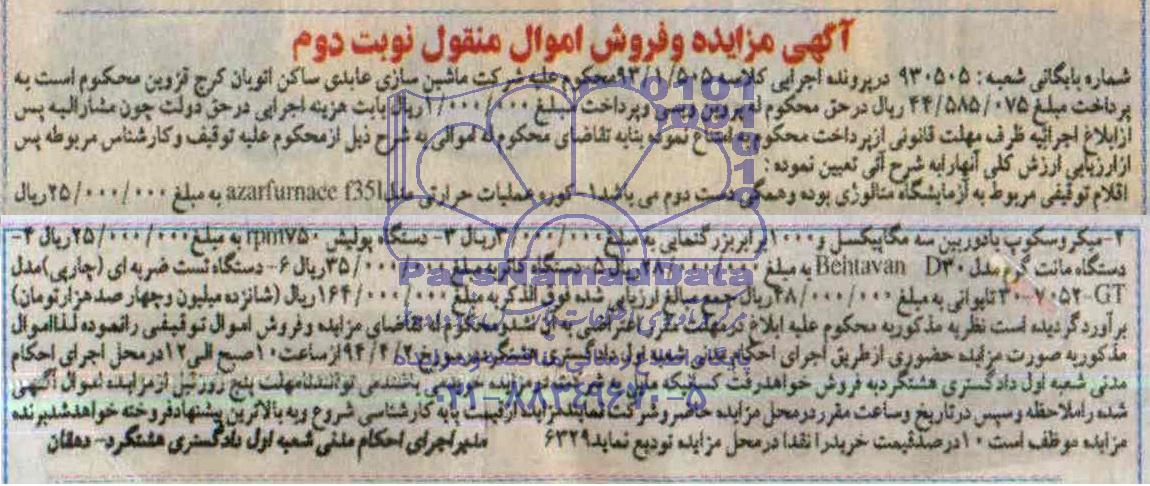 آگهی مزایده وفروش اموال منقول نوبت دوم
شماره بایگانی شعبه: ۹۳۰۵۰۵ درپرونده اجرایی کلاسه ۹۳/۱/۵۰۵محکوم علیه شرکت ماشین سازی عابدی ساکن اتوبان کرج قزوین محکوم است به
پرداخت مبلغ ۴۴/۵۸۵/۰۷۵ ریال درحق محکوم له پروین ویسی وپرداخت مبلغ ۱/۰۰۰/۰۰۰ریال بابت هزینه اجرایی درحق دولت چون مشارالیه پس
ازابلاغ اجرائیه ظرف مهلت قانونی ازپرداخت محکوم به امتناع نموده بنابه تقاضای محکوم له اموالی به شرح ذیل ازمحکوم علیه توقیف وکارشناس مربوطه پس
ازارزیابی ارزش کلی آنهارابه شرح آتی تعیین نموده :
اقلام توقیفی مربوط به آزمایشگاه متالوژی بوده وهمگی دست دوم می باشد۱-کوره عملیات حرارتی مدل azarfurnace f35l به مبلغ ۲۵/۰۰۰/۰۰۰ریال
۲-میکروسکوپ بادوربین سه مگاپیکسل و۱۰۰۰برابربزرگنمایی به مبلغ ریال ۳- دستگاه پولیش rpm۷۵۰ به مبلغ۲۵/۰۰۰/۰۰۰ریال ۴-
دستگاه مانت گرم مدل Behtavan D۳۰ به مبلغ ۲۸/۰۰۰/۰۰۰ریال ۵-دستگاه کاتربه مبلغ ۳۵/۰۰۰/۰۰۰ریال ۶-دستگاه تست ضربه ای (چارپی)مدل
GT-۷۰۵۲-۳۰تایوانی به مبلغ ۲۸/۰۰۰/۰۰۰ریال جمع مبالغ ارزیابی شده فوق الذکربه مبلغ ۱۶۴/۰۰۰/۰۰۰ریال (شانزده میلیون وچهار صدهزارتومان)
برآوردگردیده است نظربه مذکوربه محکوم علیه ابلاغ درمهلت مقرراعتراضی به آن نشدومحکوم له تقاضای مزایده وفروش اموال توقیفی رانموده لذااموال
مذکوربه صورت مزایده حضوری ازطریق اجرای احکام مدنی شعبه اول دادگستری هشتگرددرمورخ ۹۴/۴/۲ازساعت۱۰صبح الی۱۲درمحل اجرای احکام
مدنی شعبه اول دادگستری هشتگردبه فروش خواهدرفت کسانیکه مایل به شرکت درمزایده می باشندمی توانندتامهلت پنج روزقبل ازمزایده اموال آگهی
شده راملاحظه وسپس درتاریخ وساعت مقرردرمحل مزایده حاضروشرکت نمایندمزایده ازقیمت پایه کارشناسی شروع وبه بالاترین پیشنهادفروخته خواهدشدبرنده
مزایده موظف است ۱۰درصدقیمت خریدرا نقدا درمحل مزایده تودیع نماید۶۳۲۹
مدیراجرای احکام مدنی شعبه اول دادگستری هشتگرد- دهقان
ParsNamadData
۰۲۱-۸۸۳۴۹۶۷۰-۵